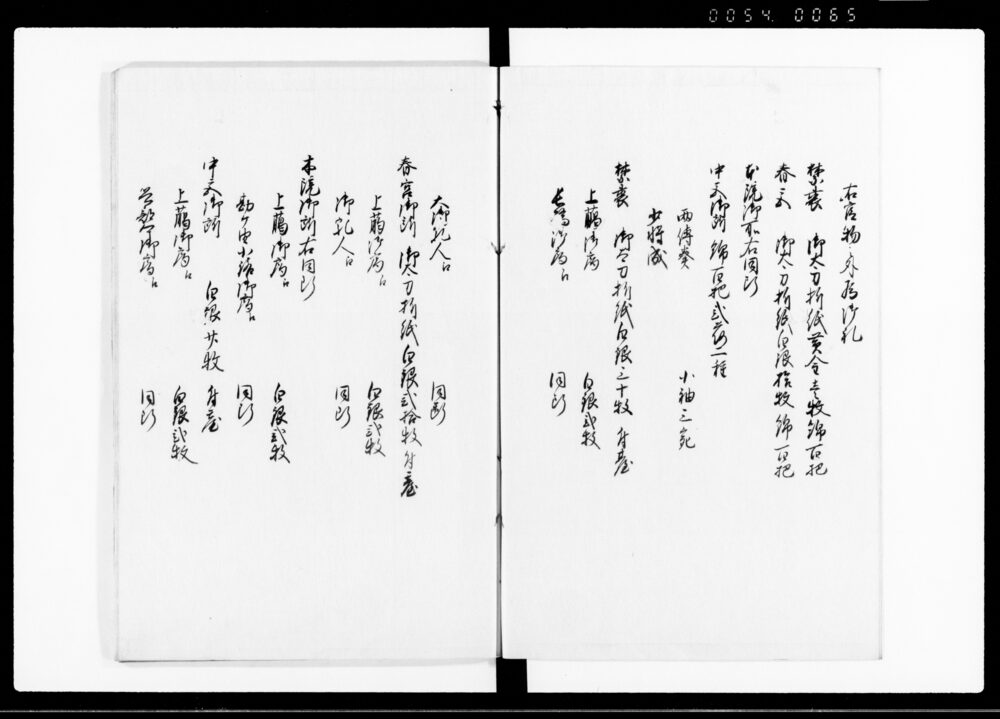 0054 0065
右官物外為御礼
禁裏 御太刀折紙黄金壱枚綿百把
春宮 御太刀折紙白銀拾枚綿百把
本院御所右同断
中宮御所 綿百把弐荷一種
両傳奏 小袖三宛
少将成
禁裏 御太刀折紙白銀三十枚 身臺
上臈御局 白銀弐枚
長橋御局口 同断
大御乳人口 同断
春宮御所 御太刀折紙白銀弐拾枚身臺
上臈御局口 白銀弐枚
御乳人口 同断
本院御所右同断
上臈御局口 白銀弐枚
勘ケ由小路御局口 同断
中宮御所 白銀廿枚 身臺
上臈御局口 白銀弐枚
御局口 同断